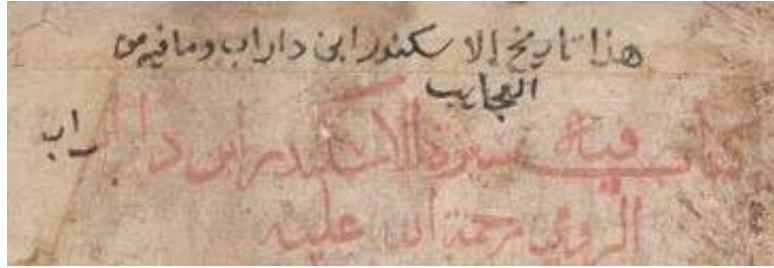 هذا تاريخ إلا سكندر ابن داراب وما فيه من
العجايب
كتاب فيه سيرة الاسكندر ابن دارا
راب
الرومي رحمة الله عليه